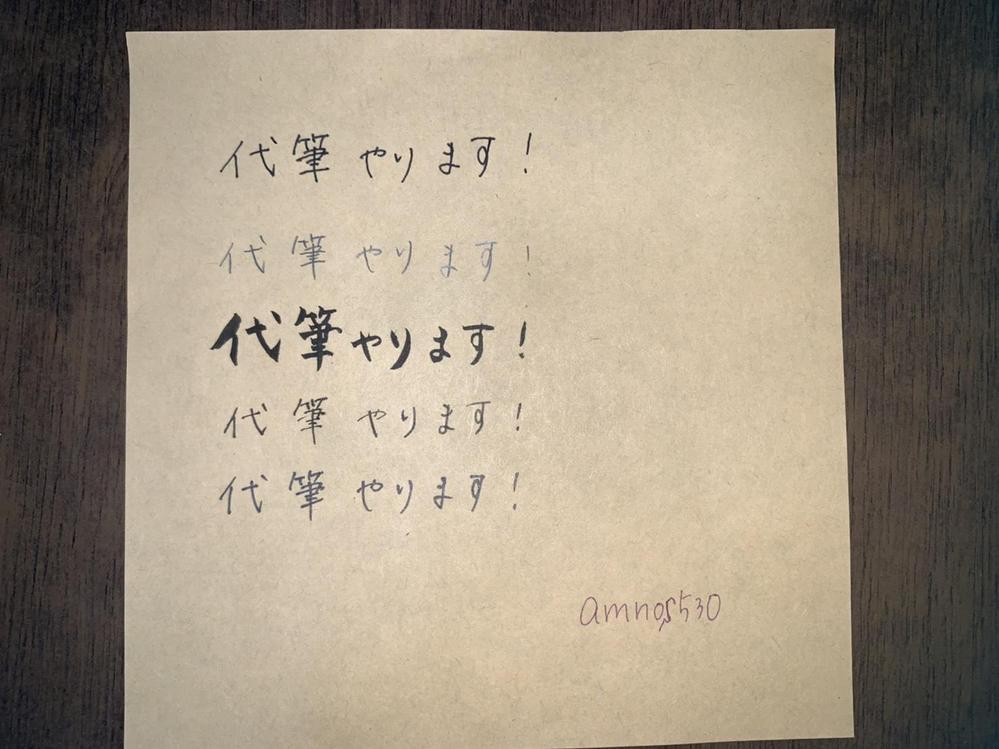 代筆やります!
代筆やります!
代筆やります!
代筆やります!
代筆やります!
amnos530